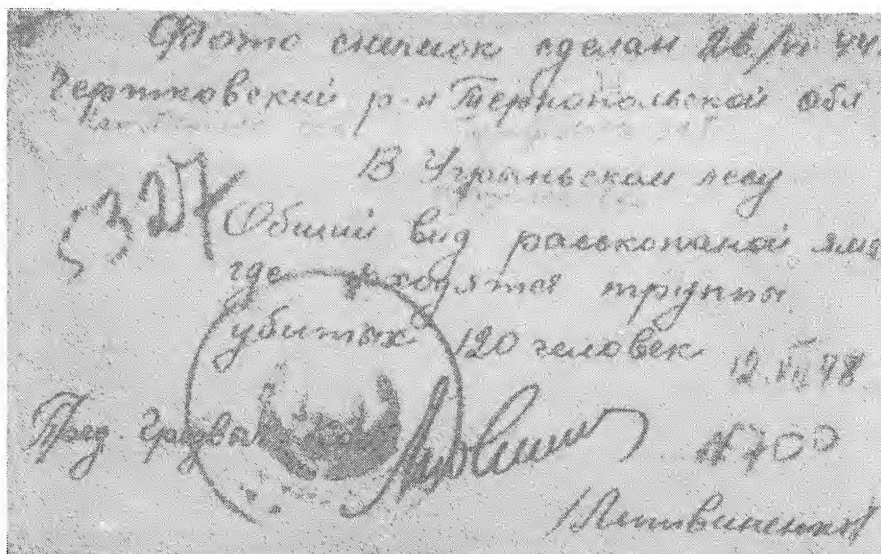 Фото снимок сделан
Чертковский р-н Тернопольской обл
В Угриньском лесу
5327
Общий вид раскопаной ямы
где находятся трупы
убитых 120 человек
Пред.
N 700